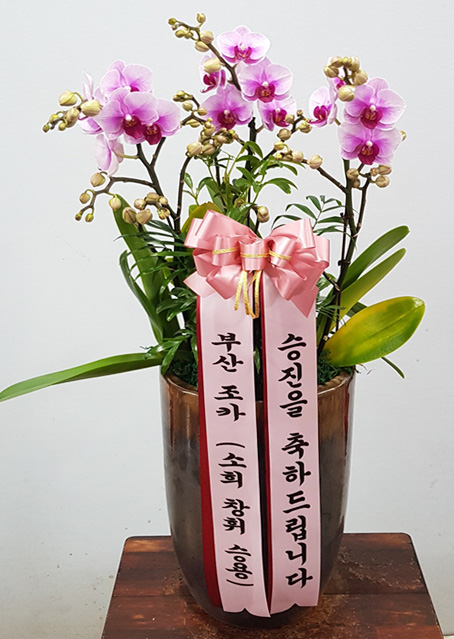 승진을 축하드립니다
부산 조카 (소희 창휘 승용)